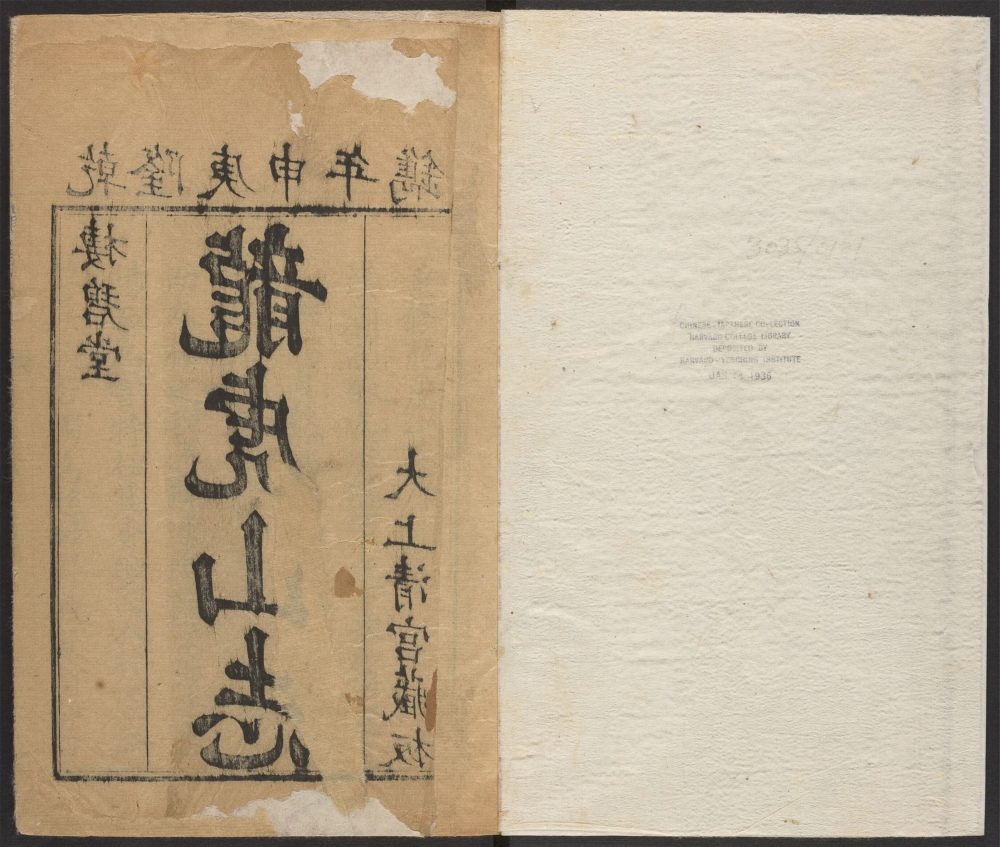 乾隆庚申年鐫
碧堂
龍虎山志
大上清宮藏板
CHINESE-JAPANESE COLLECTION
HARVARD COLLEGE LIBRARY
DEPOSITED BY
HARVARD-YENCHING INSTITUTE
JAN 1936